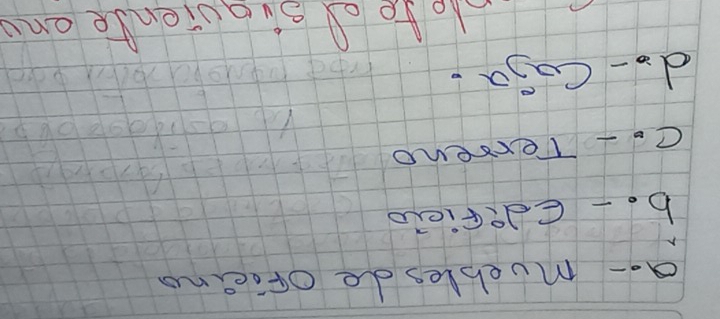 a.- Muebles de Oficina
b.- Edificio
c.- Terreno
d.- Caja.
el siguiente